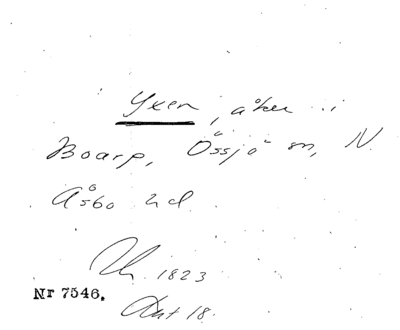 Yxen, åker i
Boarp, Össjö sn, N.
Åsbo hd.
1823
Nr 7546.
Akt 18.